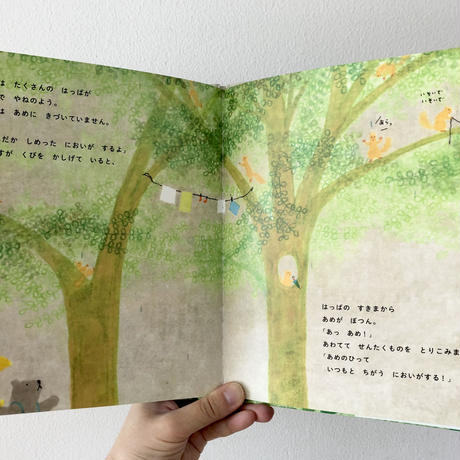 は たくさんの はっぱが
で やねのよう。
は あめに きづいていません。
だか しめった においが するよ」
すが くびを かしげて いると、
あら。
いそいで
いそいで
はっぱの すきまから
あめが ぽつん。
「あっ あめ！」
あわてて せんたくものを とりこみま
「あめのひって
いつもと ちがう においがする！」